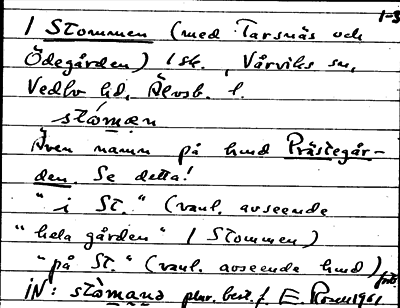 1-3
1 Stommen (med Tarsnäs och
Ödegården) 1 sk., Vårviks sn,
Vedbo hd, Älvsb. l.
stómæn
Även namn på hmd Prästegår-
den. Se detta!
"i St." (vanl. avseende
"hela gården" 1 Stommen)
"på St." (vanl. avseende hmd)
IN: plur. best. f. E. Rosen 1961